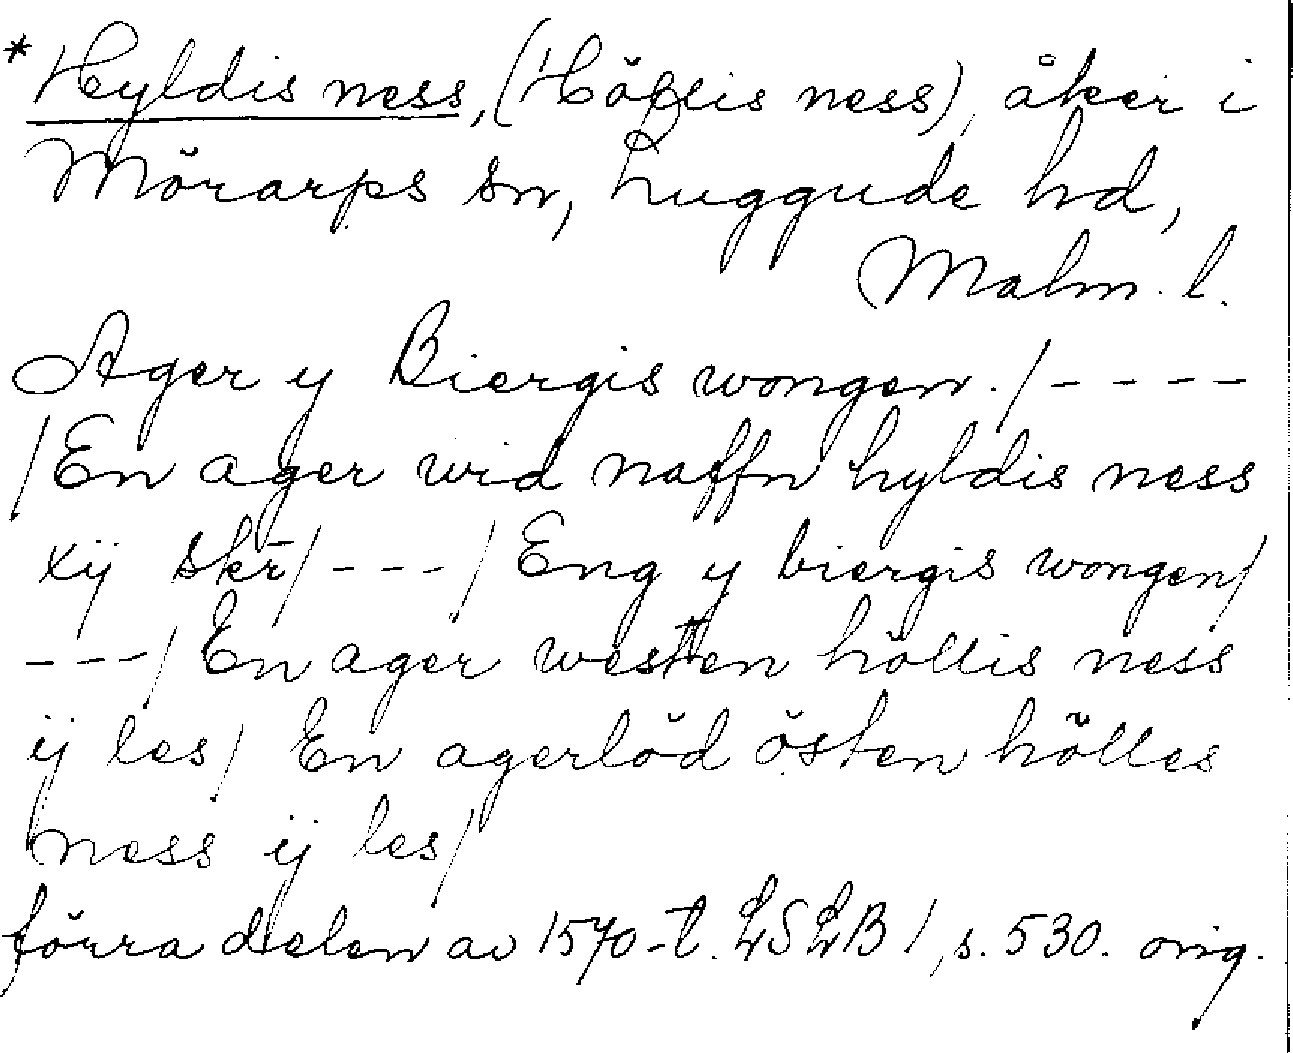 *Hyldis ness, (Höllis ness), åker i
Mörarps sn, Luggude hd,
Malm. l.
Ager y Biergis wongen. / - - - -
/ En ager wid naffn hyldis ness
xij skr̄ / - - - / Eng y biergis wongen /
- - - / En ager westen höllis ness
ij les / En agerlöd östen hölles
ness ij les /
förra delen av 1570-t. LSLB 1, s. 530. orig.